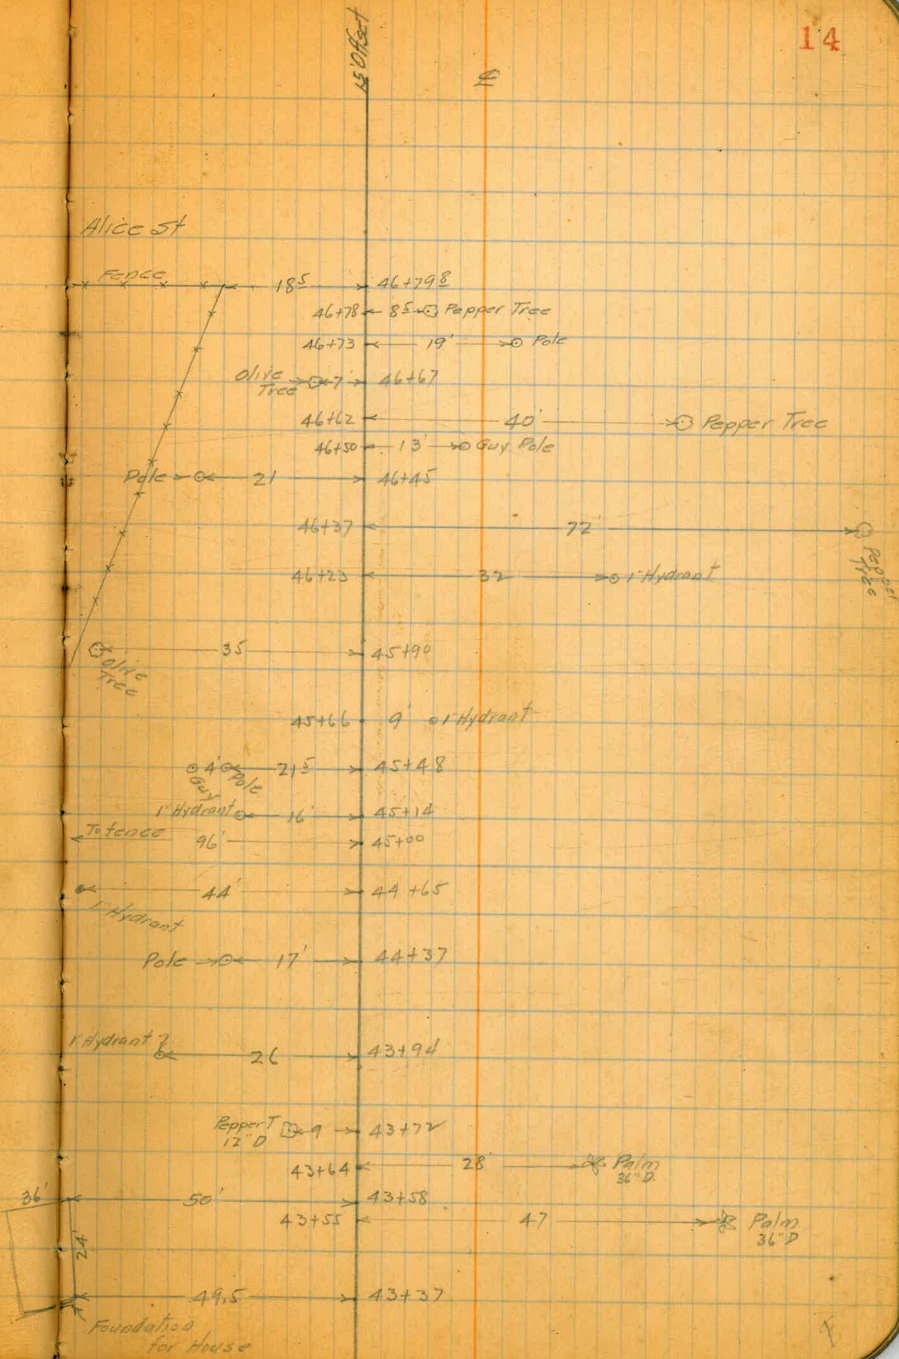 14
15' Offset
℄
Alice St
Fence 18⁵ 46+79⁸
46+78 8⁵ Pepper Tree
46+73 19' Pole
Olive Tree 7 46+67
46+62 40' Pepper Tree
46+50 13' Guy Pole
Pole 21 46+45
46+37 72' Pepper Tree
46+23 32 1" Hydrant
Olive Tree 35 45+90
45+66 9' 1" Hydrant
Guy 4' Pole 21⁵ 45+48
1" Hydrant 16' 45+14
To fence 96' 45+00
44' 44+65
1" Hydrant
Pole 17' 44+37
1" Hydrant ? 26 43+94
Pepper T 9 43+72
12" D
43+64 28' Palm
36" D.
36' 50' 43+58
43+55 47 Palm
36" D
24'
49.5 43+37
Foundation
for House